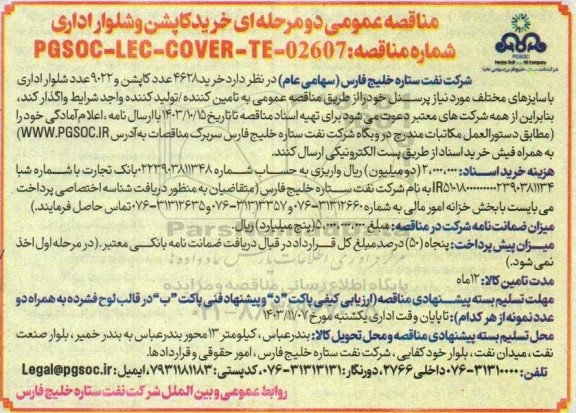 مناقصه عمومی دو مرحله ای خرید کاپشن و شلوار اداری
شماره مناقصه: PGSOC-LEC-COVER-TE-02607
PGSOC
Persian Gulf Star Oil Company
شرکت نفت ستاره خلیج فارس (سهامی عام) در نظر دارد خرید ۴۶۲۸ عدد کاپشن و ۹۰۲۲ عدد شلوار اداری
با سایزهای مختلف مورد نیاز پرسنل خود را از طریق مناقصه عمومی به تامین کننده /تولید کننده واجد شرایط واگذار کند،
بنابراین از همه شرکت های معتبر دعوت می شود برای تهیه اسناد مناقصه تا تاریخ ۱۴۰۳/۱۰/۱۵ با ارسال نامه ،اعلام آمادگی خود را
(مطابق دستورالعمل مکاتبات مندرج در وبگاه شرکت نفت ستاره خلیج فارس سربرگ مناقصات به آدرس WWW.PGSOC.IR)
به همراه فیش خرید اسناد از طریق پست الکترونیکی ارسال کنند.
هزینه خرید اسناد: ۲.۰۰۰.۰۰۰ (دو میلیون) ریال واریزی به حساب شماره ۲۲۳۹۰۳۸۱۱۳۴۸ بانک تجارت با شماره شبا
به نام شرکت نفت ستاره خلیج فارس (متقاضیان به منظور دریافت شناسه اختصاصی پرداخت
می بایست با بخش خزانه امور مالی به شماره ۳۱۳۱۲۶۶۰-۰۷۶ و ۳۱۳۱۳۳۵۷-۰۷۶ و ۳۱۳۱۲۶۳۵-۰۷۶ تماس حاصل فرمایند.)
میزان ضمانت نامه شرکت در مناقصه: مبلغ ۵.۰۰۰.۰۰۰.۰۰۰ (پنج میلیارد) ریال.
میزان پیش پرداخت: پنجاه (۵۰) درصد مبلغ کل قرارداد در قبال دریافت ضمانت نامه بانکی معتبر. (در مرحله اول اخذ
نمی شود.)
مدت تامین کالا: ۱۲ ماه
مهلت تسلیم بسته پیشنهادی مناقصه (ارزیابی کیفی پاکت "د" و پیشنهاد فنی پاکت "ب" در قالب لوح فشرده به همراه دو
عدد نمونه از هر کدام): تا پایان وقت اداری یکشنبه مورخ ۱۴۰۳/۱۱/۰۷
محل تسلیم بسته پیشنهادی مناقصه و محل تحویل کالا: بندرعباس، کیلومتر ۱۳ محور بندرعباس به بندر خمیر، بلوار صنعت
نفت، میدان نفت، بلوار خود کفایی، شرکت نفت ستاره خلیج فارس، امور حقوقی و قراردادها.
تلفن: ۳۱۳۱۰۰۰۰-۰۷۶ داخلی ۲۷۶۶، دورنگار: ۳۱۳۱۳۱۳۱-۰۷۶، کدپستی: ۷۹۳۱۱۸۱۱۸۳، ایمیل: Legal@pgsoc.ir
روابط عمومی و بین الملل شرکت نفت ستاره خلیج فارس